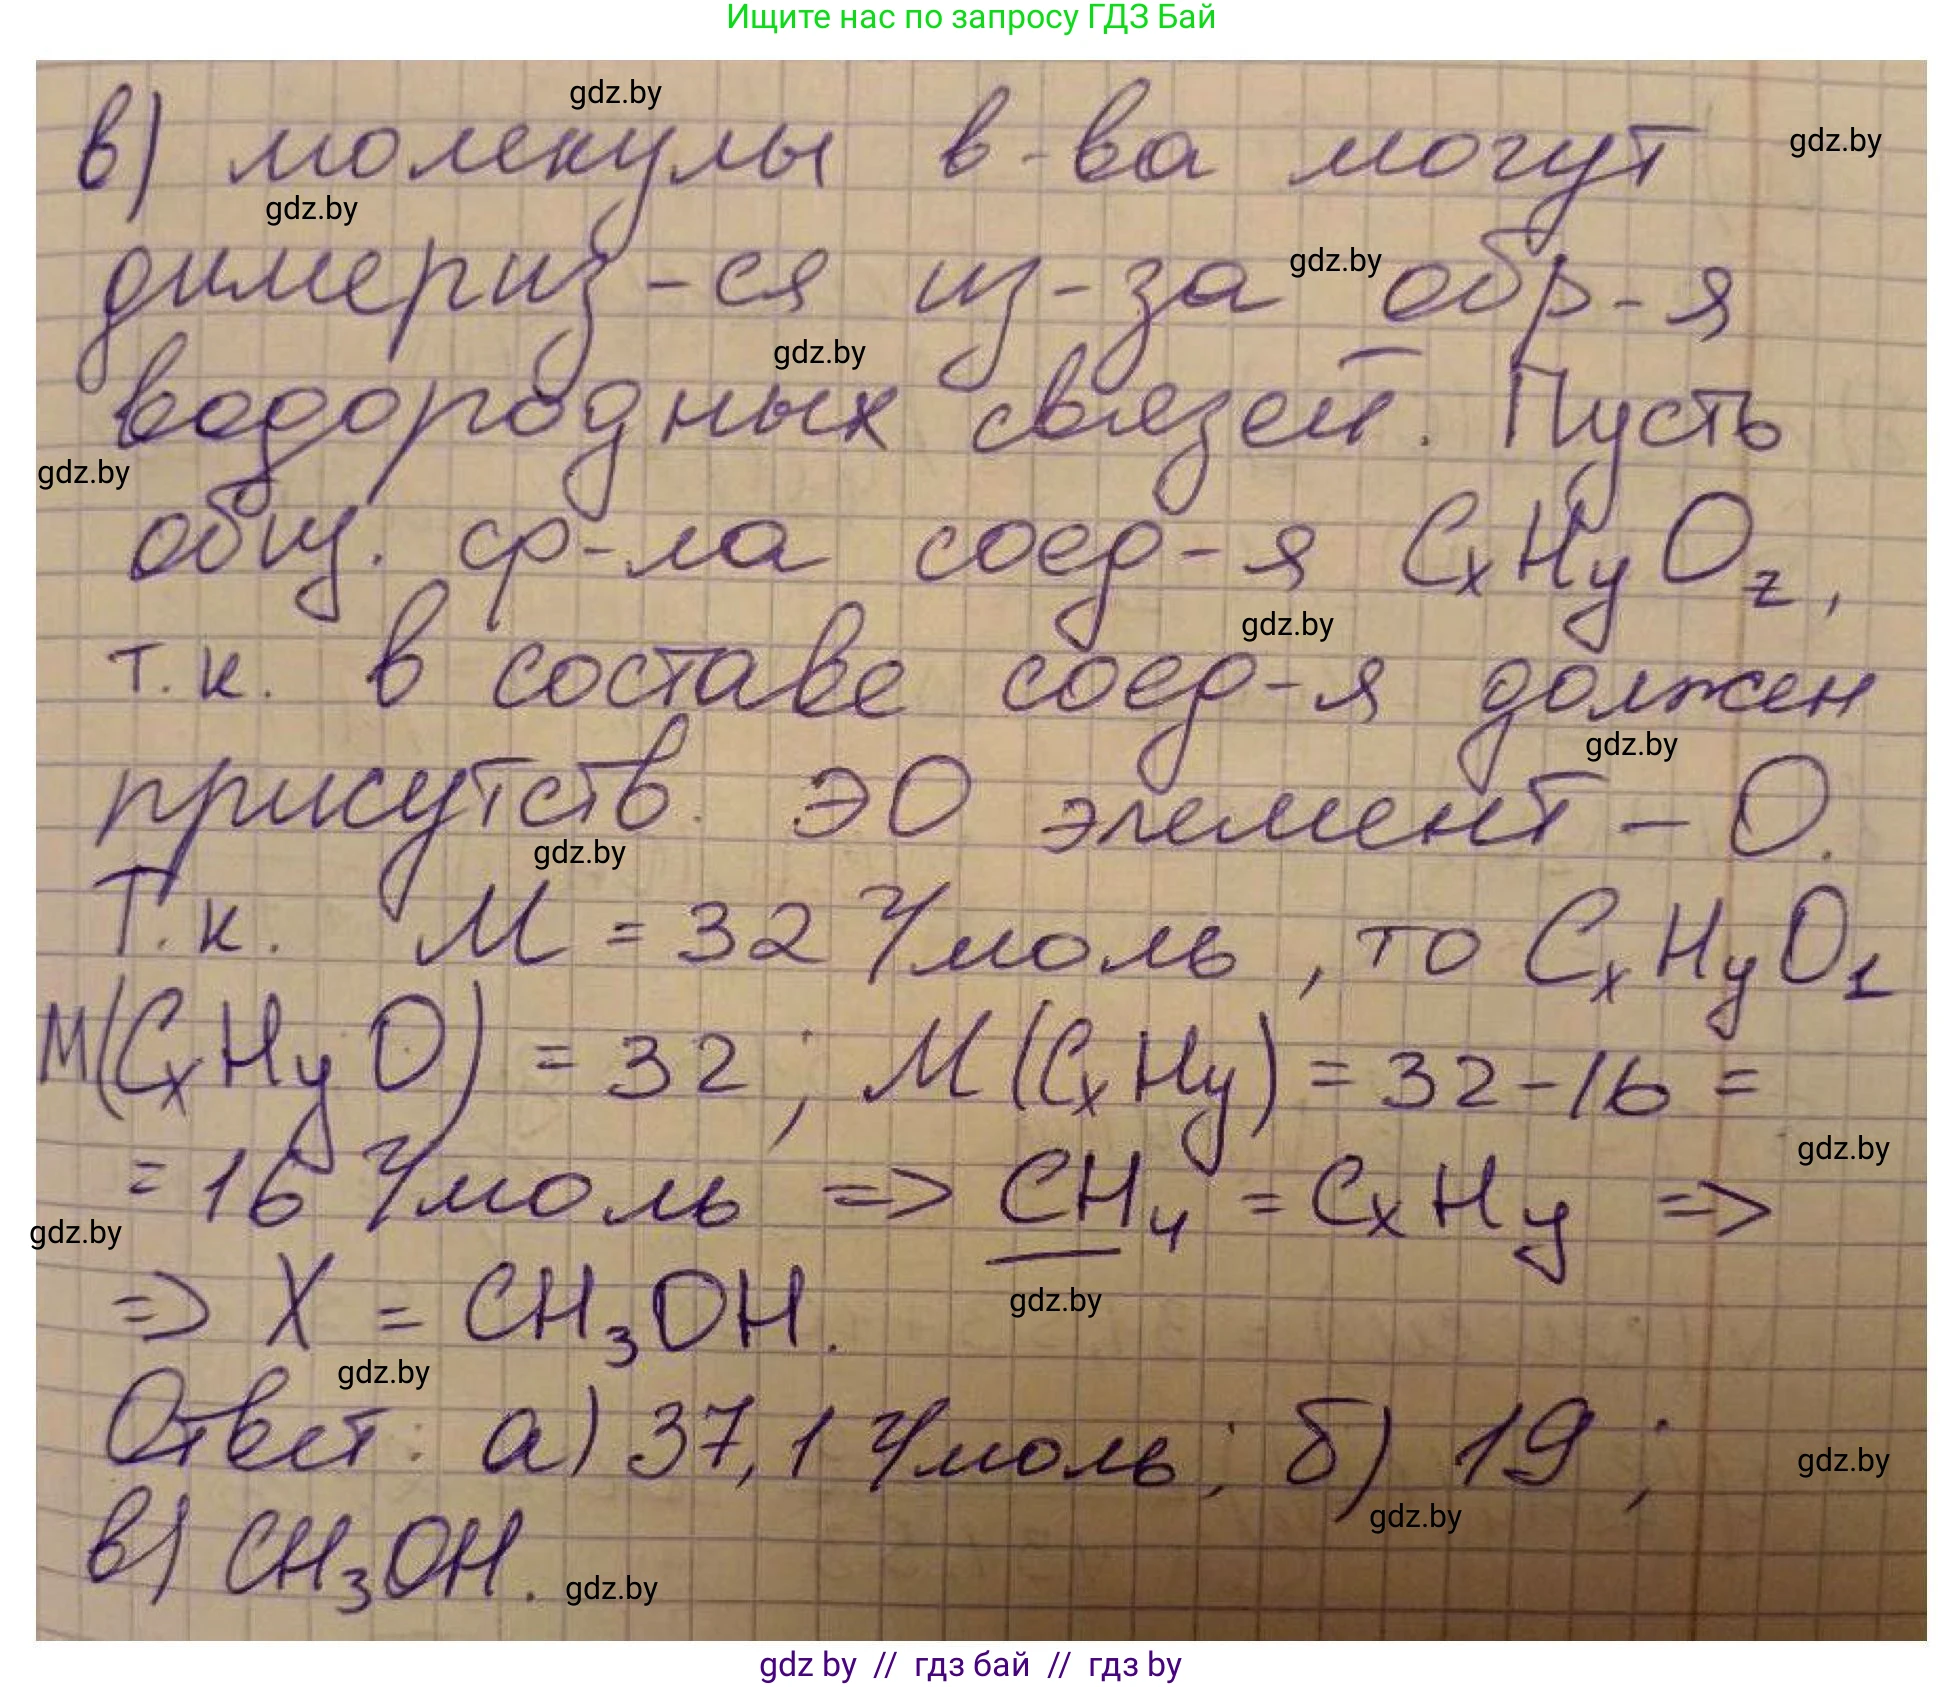 Ищите нас по запросу ГДЗ Бай
gdz.by
в) молекулы в-ва могут
gdz.by
gdz.by
димериз-ся из-за обр-я
gdz.by
gdz.by
водородных связей. Пусть
gdz.by
общ. ф-ла соед-я CxHyOz,
gdz.by
т.к. в составе соед-я должен
gdz.by
присутств. ЭО элемент – О.
gdz.by
Т.к. M = 32 г/моль, то CxHyO1
M(CxHyO) = 32; M(CxHy) = 32-16 =
gdz.by
= 16 г/моль => CH4 = CxHy =>
gdz.by
=> X = CH3OH.
gdz.by
gdz.by
Ответ: а) 37,1 г/моль; б) 19;
gdz.by
gdz.by
в) CH3OH.
gdz.by
gdz by // гдз бай // гдз by